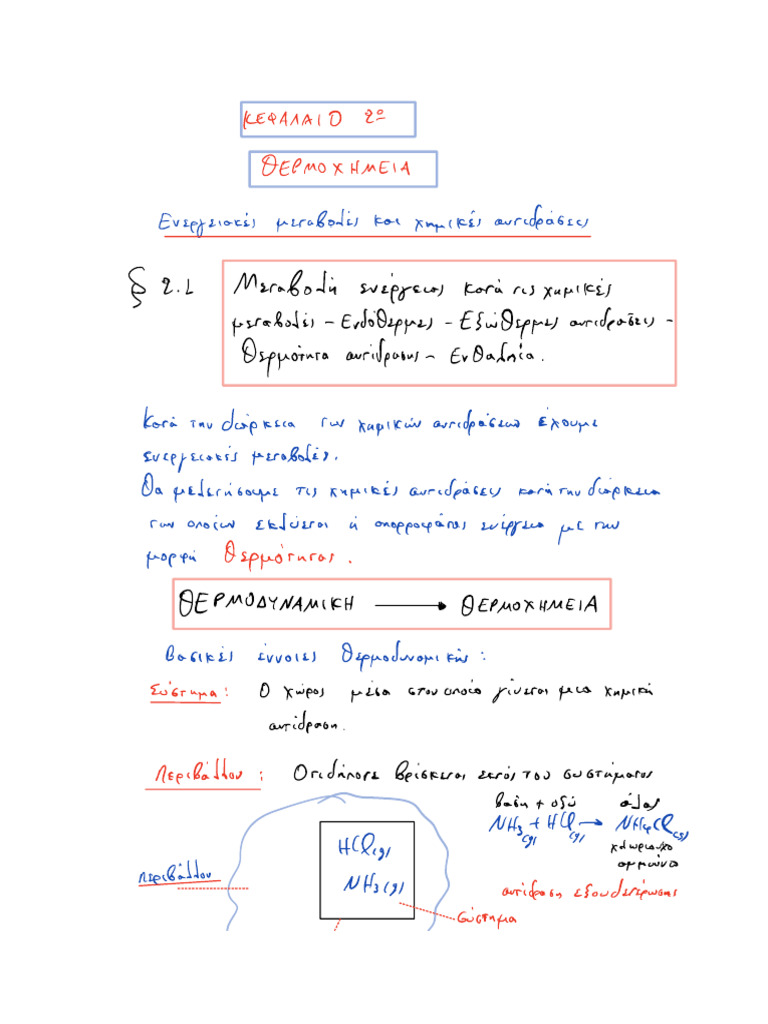 ΚΕΦΑΛΑΙΟ 2º
ΘΕΡΜΟΧΗΜΕΙΑ
Ενεργειακές μεταβολές και χημικές αντιδράσεις
§ 2.1 Μεταβολή ενέργειας κατά τις χημικές
μεταβολές - Ενδόθερμες - Εξώθερμες αντιδράσεις -
Θερμότητα αντίδρασης - Ενθαλπία.
Κατά την διάρκεια των χημικών αντιδράσεων έχουμε
ενεργειακές μεταβολές.
Θα μελετήσουμε τις χημικές αντιδράσεις κατά την διάρκεια
των οποίων εκλύεται ή απορροφάται ενέργεια με την
μορφή θερμότητας.
ΘΕΡΜΟΔΥΝΑΜΙΚΗ → ΘΕΡΜΟΧΗΜΕΙΑ
Βασικές έννοιες θερμοδυναμικής:
Σύστημα: Ο χώρος μέσα στον οποίο γίνεται μια χημική
αντίδραση.
Περιβάλλον: Οτιδήποτε βρίσκεται εκτός του συστήματος
βάση + οξύ άλας
NH3(g) + HCl(g) → NH4Cl(s)
χλωριούχο
αμμώνιο
αντίδραση εξουδετέρωσης
HCl(g)
NH3(g)
περιβάλλον
σύστημα